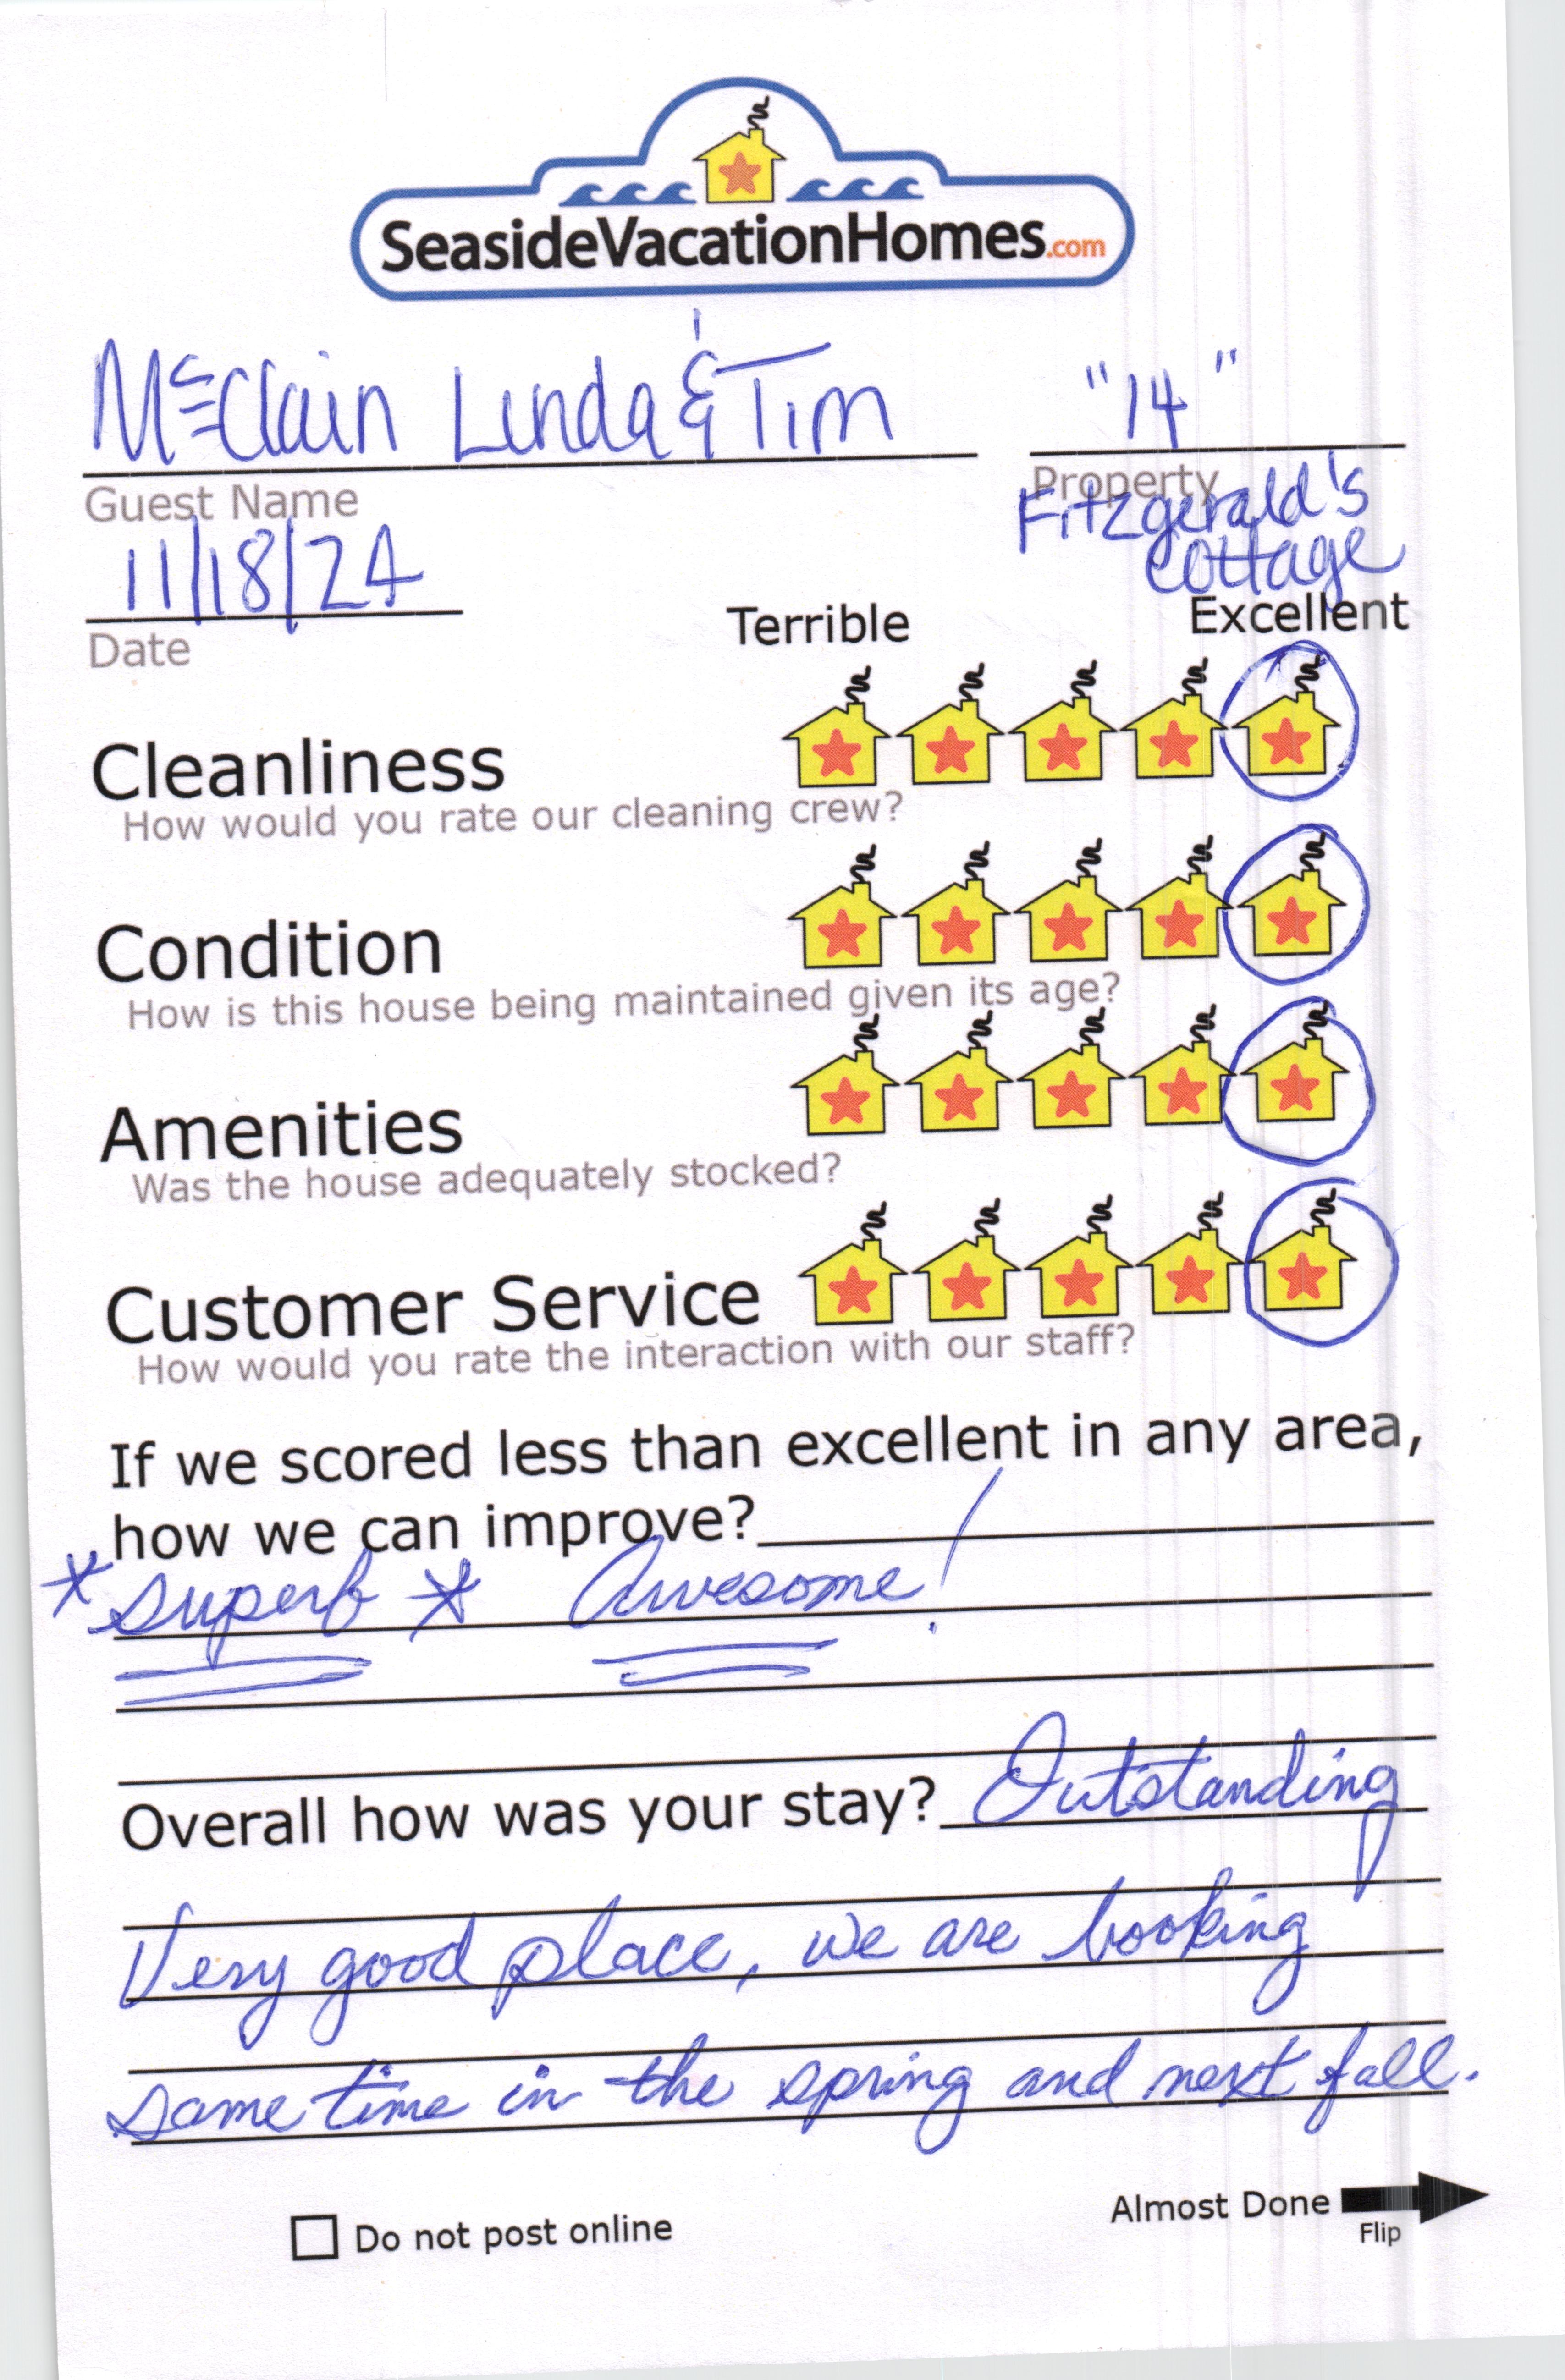 SeasideVacationHomes.com
McClain Linda & Tim "14"
Guest Name Property
11/18/24 Fitzgerald's
cottage
Date Terrible Excellent
Cleanliness
How would you rate our cleaning crew?
Condition
How is this house being maintained given its age?
Amenities
Was the house adequately stocked?
Customer Service
How would you rate the interaction with our staff?
If we scored less than excellent in any area,
how we can improve?
* superb * Awesome!
Overall how was your stay? Outstanding
Very good place, we are booking
same time in the spring and next fall.
Do not post online Almost Done
Flip